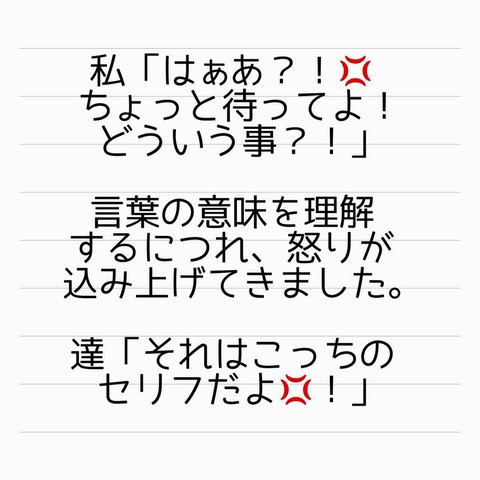 私「はぁあ？！💢
ちょっと待ってよ！
どういう事？！」
言葉の意味を理解
するにつれ、怒りが
込み上げてきました。
達「それはこっちの
セリフだよ💢！」